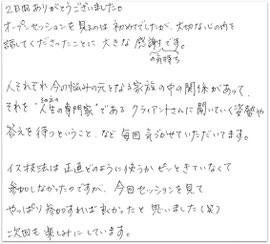 2日目ありがとうございました。
オープンセッションを見るのは初めてでしたが、大切な心の内を
話してくださったことに大きな感謝です。
の気持ち
人それぞれ今の悩みの元となる家族の中の関係があって、
それを"人生の専門家"であるクライアントさんに聞いていく姿勢や
答えを待つということ、など毎回気づかせていただいてます。
イス技法は正直どのように使うかピンときていなくて
参加しなかったのですが、今回セッションを見て
やっぱり参加すれば良かったと思いました(笑)
次回も楽しみにしています。